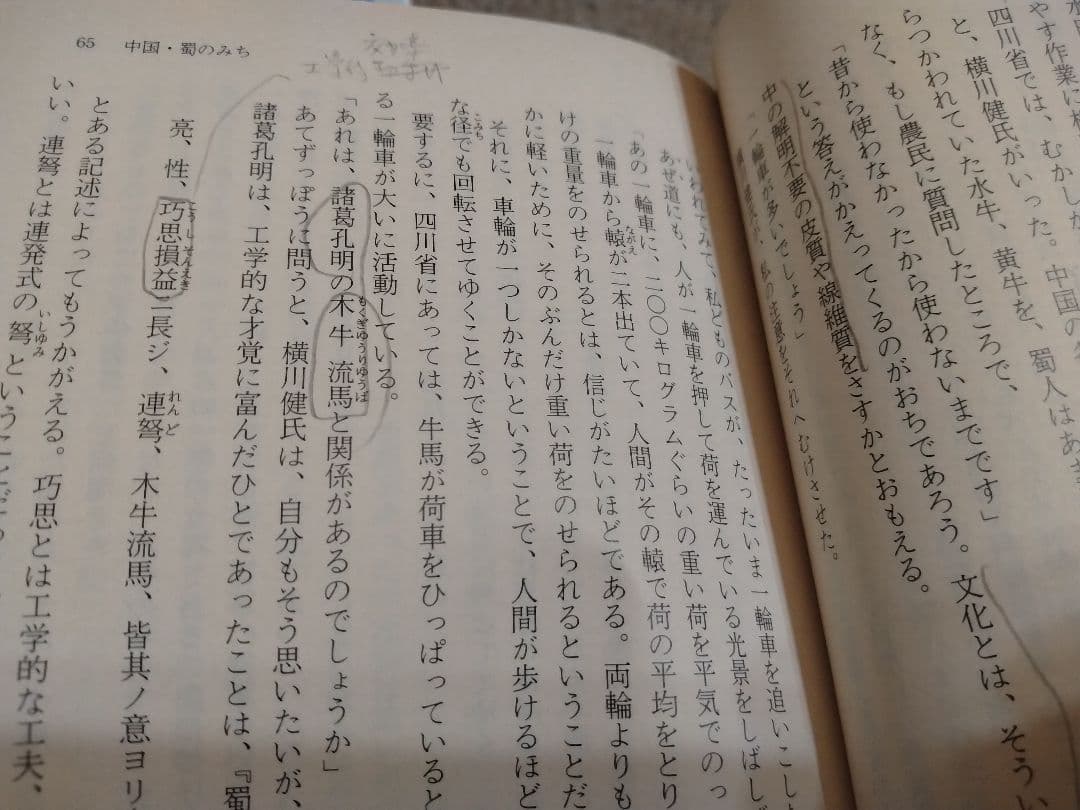 水田
やす作業に
四川省では、むかしか
と、横川健氏がいった。中国の
らつかわれていた水牛、黄牛を、蜀人はあま
なく、もし農民に質問したところで、
「昔から使わなかったから使わないまでです」
という答えがかえってくるのがおちであろう。文化とは、そうい
中の解明不要の皮質や線維質をさすかとおもえる。
「一輪車が多いでしょう」
横川健氏が、私の注意をそれへむけさせた。
65 中国・蜀のみち
いわれてみて、私どものバスが、たったいま一輪車を追いこし
あぜ道にも、人が一輪車を押して荷を運んでいる光景をしばし
「あの一輪車に、二〇〇キログラムぐらいの重い荷を平気でのっ
一輪車から轅が二本出ていて、人間がその轅で荷の平均をとり
けの重量をのせられるとは、信じがたいほどである。両輪よりも
かに軽いために、そのぶんだけ重い荷をのせられるということだ
それに、車輪が一つしかないということで、人間が歩けるほど
な径でも回転させてゆくことができる。
要するに、四川省にあっては、牛馬が荷車をひっぱっていると
る一輪車が大いに活動している。
「あれは、諸葛孔明の木牛流馬と関係があるのでしょうか」
あてずっぽうに問うと、横川健氏は、自分もそう思いたいが、
諸葛孔明は、工学的な才覚に富んだひとであったことは、『蜀
亮、性、巧思損益ニ長ジ、連弩、木牛流馬、皆其ノ意ヨリ
とある記述によってもうかがえる。巧思とは工学的な工夫、
いい。連弩とは連発式の弩ということだ